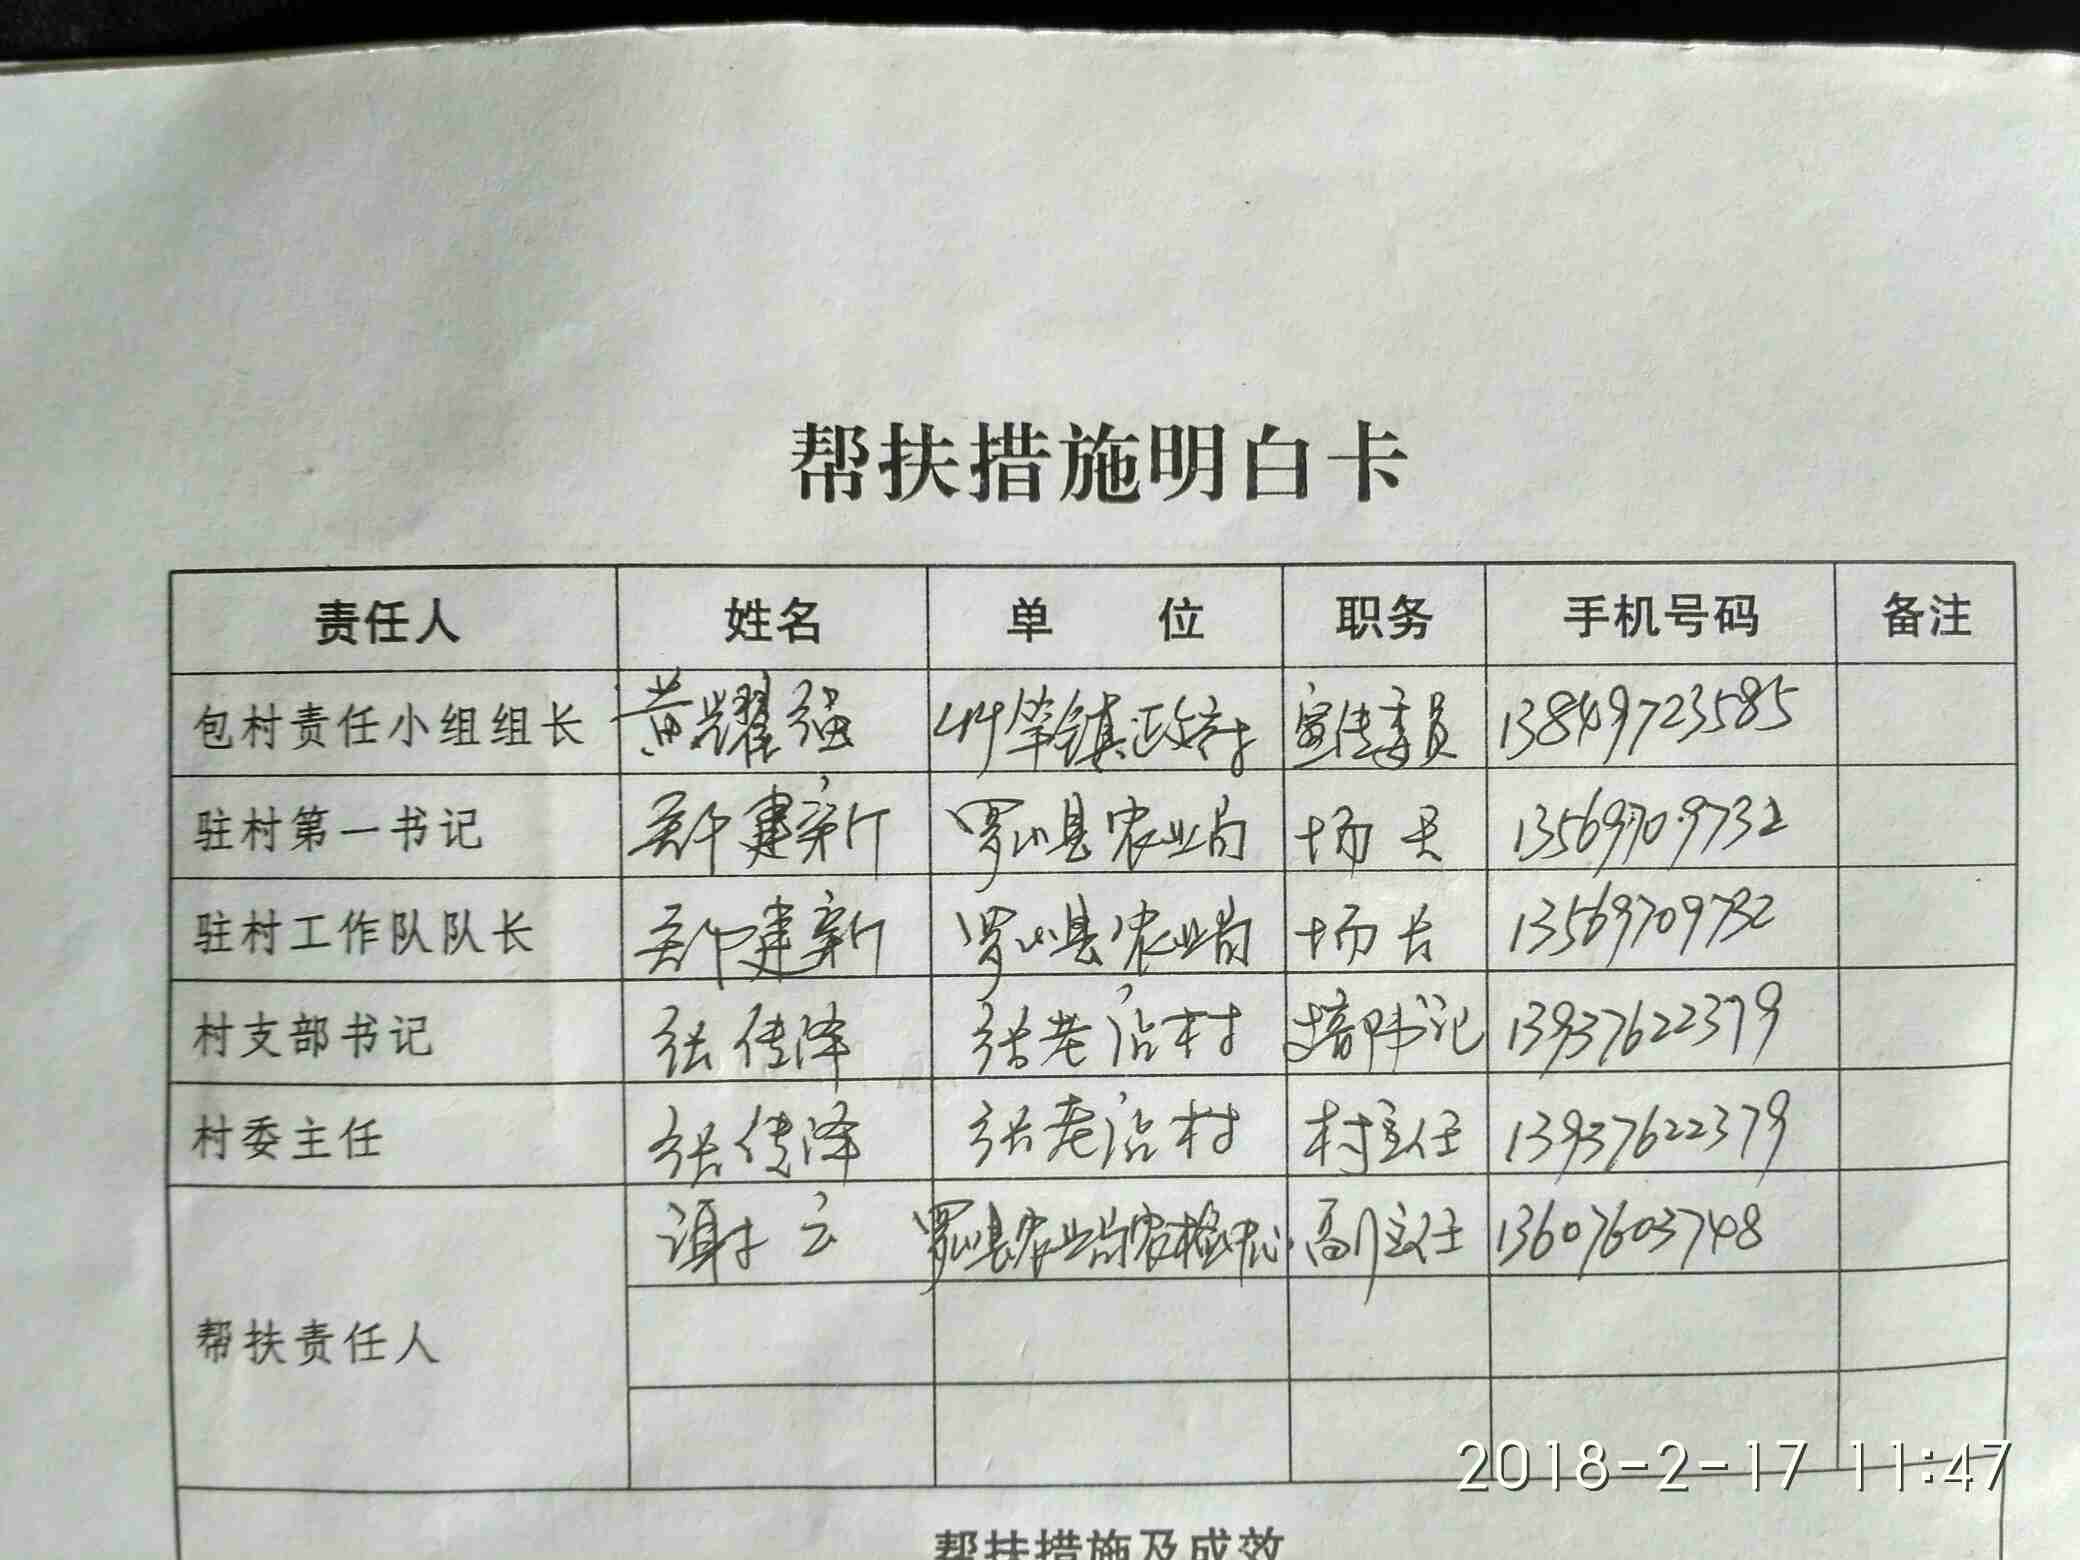 帮扶措施明白卡
责任人 姓名 单 位 职务 手机号码 备注
包村责任小组组长 黄耀强 竹竿镇政府 宣传委员 13849723585
驻村第一书记 郑建新 罗山县农业局 场长 13569709732
驻村工作队队长 郑建新 罗山县农业局 场长 13569709732
村支部书记 张传泽 张老店村 支部书记 13937622379
村委主任 张传泽 张老店村 村主任 13937622379
帮扶责任人 谢云 罗山县农业局农检中心 副主任 13607603748
2018-2-17 11:47
帮扶措施及成效